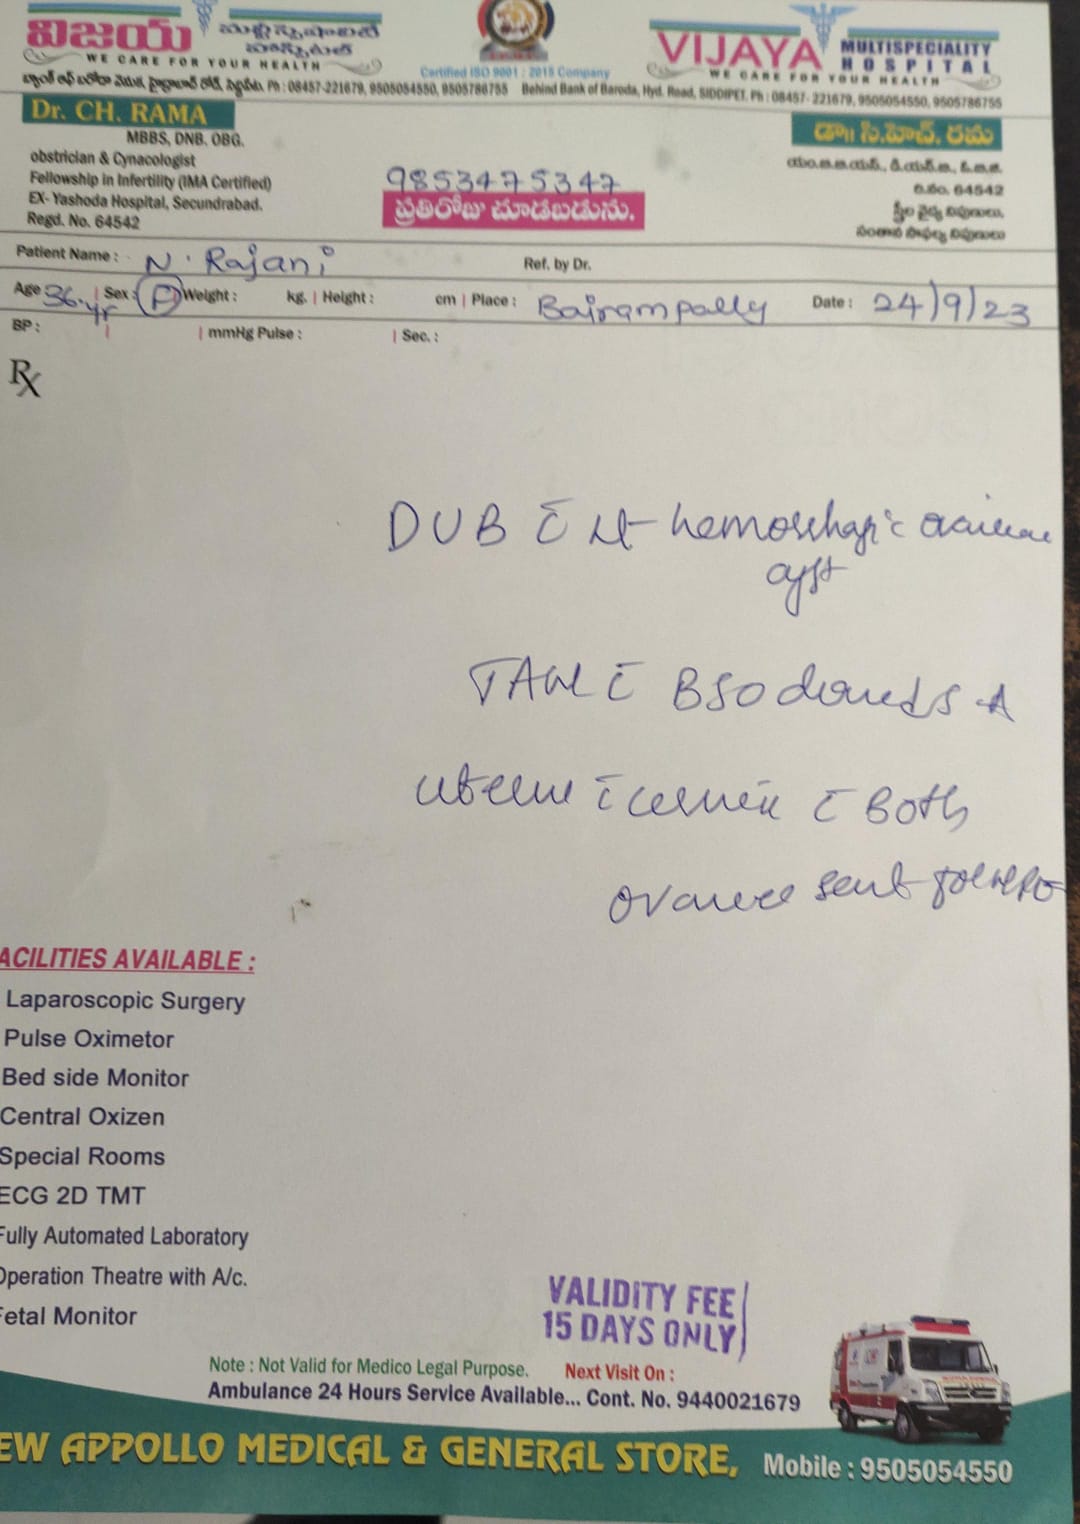 విజయ మల్టీస్పెషాలిటీ హాస్పిటల్
WE CARE FOR YOUR HEALTH
Certified ISO 9001 : 2015 Company
VIJAYA MULTISPECIALITY HOSPITAL
WE CARE FOR YOUR HEALTH
బ్యాంక్ ఆఫ్ బరోడా వెనుక, హైద్రాబాద్ రోడ్, సిద్దిపేట. Ph : 08457-221679, 9505054550, 9505786755 Behind Bank of Baroda, Hyd. Road, SIDDIPET. Ph : 08457- 221679, 9505054550, 9505786755
Dr. CH. RAMA
MBBS, DNB. OBG.
obstrician & Cynacologist
Fellowship in Infertility (IMA Certified)
EX- Yashoda Hospital, Secundrabad.
Regd. No. 64542
9853475347
ప్రతిరోజు చూడబడును.
డా॥ సి.హెచ్. రమ
రి.నం. 64542
స్త్రీల వైద్య నిపుణులు,
సంతాన సాఫల్య నిపుణులు
Patient Name : N. Rajani Ref. by Dr.
Age 36.yr | Sex : F Weight : kg. | Height : cm | Place : Bairampally Date : 24/9/23
BP : | mmHg Pulse : | Sec. :
Rx
DUB c hemorrhagic ovarian
cyst
TAH c BSO done
uterus c cervix c Both
ovaries sent for HPE
FACILITIES AVAILABLE :
Laparoscopic Surgery
Pulse Oximetor
Bed side Monitor
Central Oxizen
Special Rooms
ECG 2D TMT
Fully Automated Laboratory
Operation Theatre with A/c.
Fetal Monitor
VALIDITY FEE
15 DAYS ONLY
Note : Not Valid for Medico Legal Purpose. Next Visit On :
Ambulance 24 Hours Service Available... Cont. No. 9440021679
EW APPOLLO MEDICAL & GENERAL STORE, Mobile : 9505054550